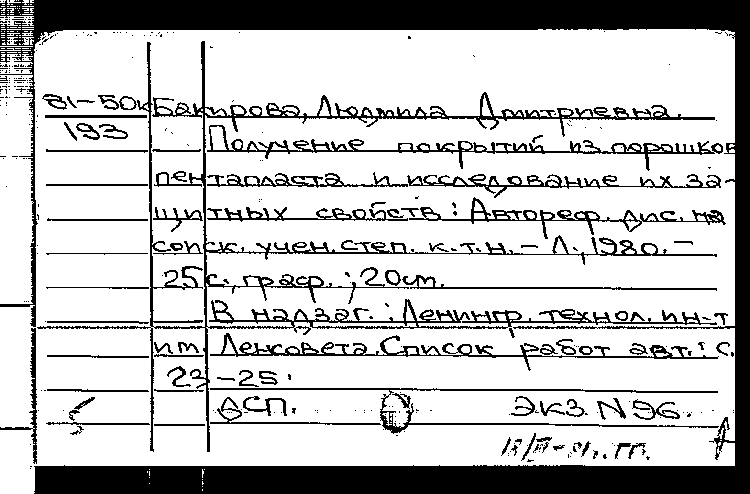 81-50к Бакирова, Людмила Дмитриевна.
193 Получение покрытий из порошков
пентапласта и исследование их за-
щитных свойств: Автореф. дис. на
соиск. учен. степ. к.т.н. - Л., 1980. -
25 с., граф.; 20 см.
В надзаг.: Ленингр. технол. ин-т
им. Ленсовета. Список работ авт.: с.
23-25.
ДСП. Экз. N 96.
18/III-81г. ГГ.